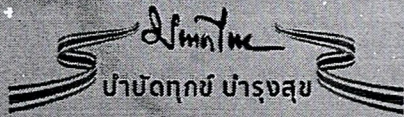 มหาดไทย
บำบัดทุกข์ บำรุงสุข